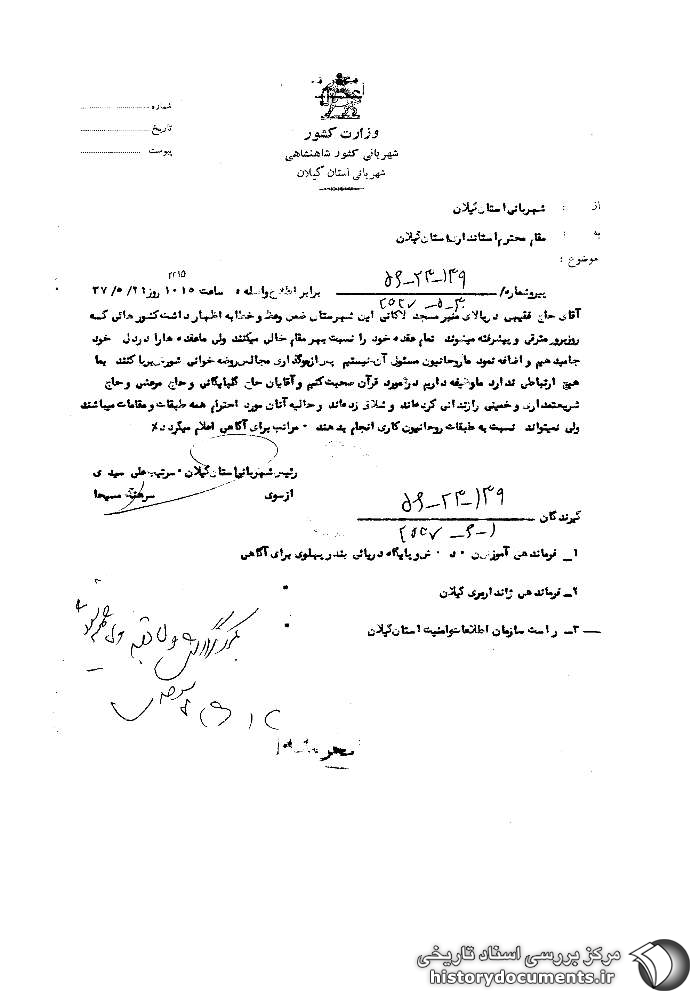 وزارت کشور
شهربانی کشور شاهنشاهی
شهربانی استان گیلان
شماره
تاریخ
پیوست
از : شهربانی استان گیلان
به : مقام محترم استانداری استان گیلان
موضوع :
پیرو شماره / ۱۴۹-۲۴-۵۶
برابر اطلاع واصله ساعت ۱۰۱۵ روز ۲۶/۵/۳۷
آقای حاج فقیهی در بالای منبر مسجد لاکانی این شهرستان ضمن وعظ و خطابه اظهار داشت کشورهائی که
روزبروز مترقی و پیشرفته میشوند تمام عقده خود را نسبت بهر مقام خالی میکنند ولی ما عقده ها را در دل خود
جا میدهیم و اضافه نمود ما روحانیون مسئول آن نیستیم پس از برگذاری مجالس روضه خوانی شورش برپا کنند بما
هیچ ارتباطی ندارد ما وظیفه داریم در مورد قرآن صحبت کنیم و آقایان حاج گلپایگانی و حاج مرعشی و حاج
شریعتمداری و خمینی را زندانی کرده اند و شلاق زده اند و حالیه آنان مورد احترام همه طبقات و مقامات میباشند
ولی نمیتواند نسبت به طبقات روحانیون کاری انجام بدهند ۰ مراتب برای آگاهی اعلام میگردد٪
رئیس شهربانی استان گیلان - سرتیپ علی سیدی
از سوی سرهنگ مسیحا
گیرندگان ۱۴۹-۲۴-۵۶
۱ـ فرماندهی آموزش ۰ د ۰ ش و پایگاه دریائی بندر پهلوی برای آگاهی
۲ـ فرماندهی ژاندارمری گیلان "
۳ـ ریاست سازمان اطلاعات و امنیت استان گیلان "
محرمانه
مرکز بررسی اسناد تاریخی
historydocuments.ir